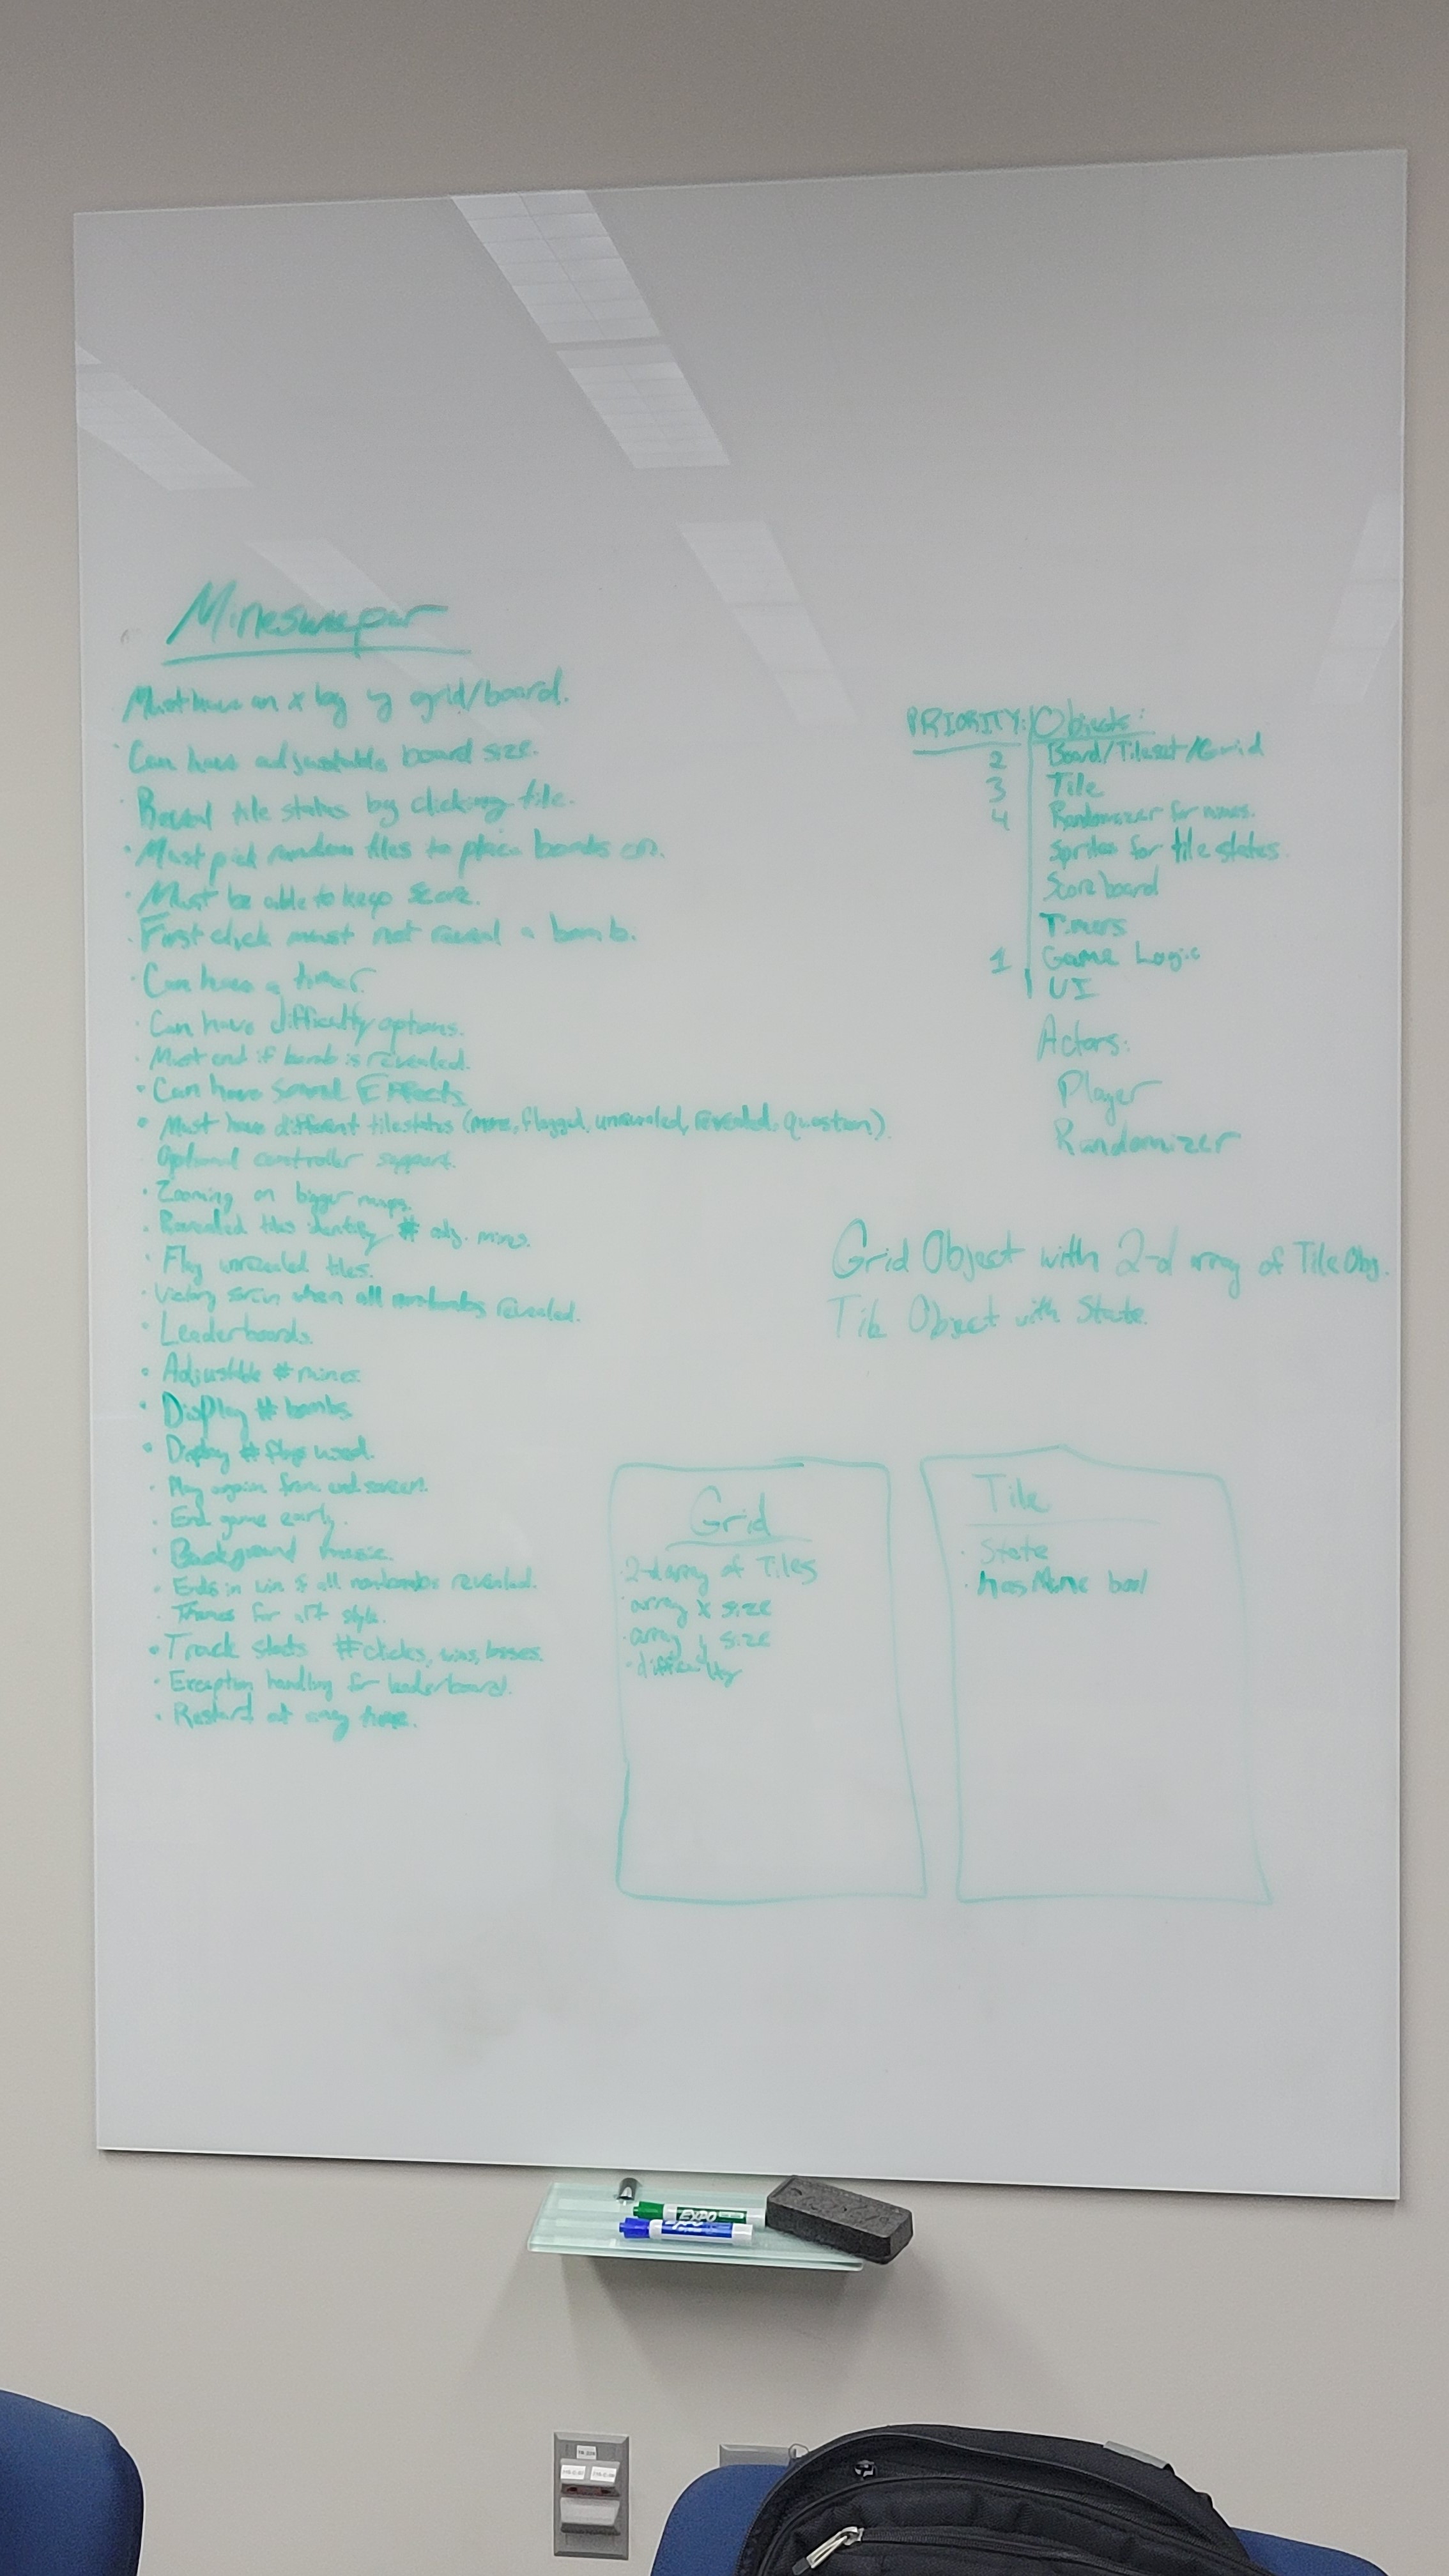 Minesweeper
Must have an x by y grid/board.
· Can have adjustable board size.
· Reveal tile states by clicking tile.
· Must pick random tiles to place bombs on.
· Must be able to keep score.
· First click must not reveal a bomb.
· Can have a timer.
· Can have difficulty options.
· Must end if bomb is revealed.
· Can have sound Effects
· Must have different tilestates (mine, flagged, unrevealed, revealed, question).
Optional controller support.
· Zooming on bigger maps.
· Revealed tiles identify # adj. mines.
· Flag unrevealed tiles.
· Victory when all nonbombs revealed.
· Leaderboards.
· Adjustable # mines.
· Display # bombs
· Display # flags used.
· Play again from end screen.
· End game early.
· Background music.
· Ends in win if all nonbombs revealed.
· Themes for art style.
· Track stats #clicks, wins, losses.
· Exception handling for leaderboard.
· Restart at any time.
PRIORITY: Objects:
2 Board/Tileset/Grid
3 Tile
4 Randomizer for mines.
Sprites for tile states.
Scoreboard
Timers
1 Game Logic
UI
Actors:
Player
Randomizer
Grid Object with 2-d array of Tile Obj.
Tile Object with State.
Grid
· 2-d array of Tiles
· array x size
· array y size
· difficulty
Tile
· State
· hasMine bool
EXPO